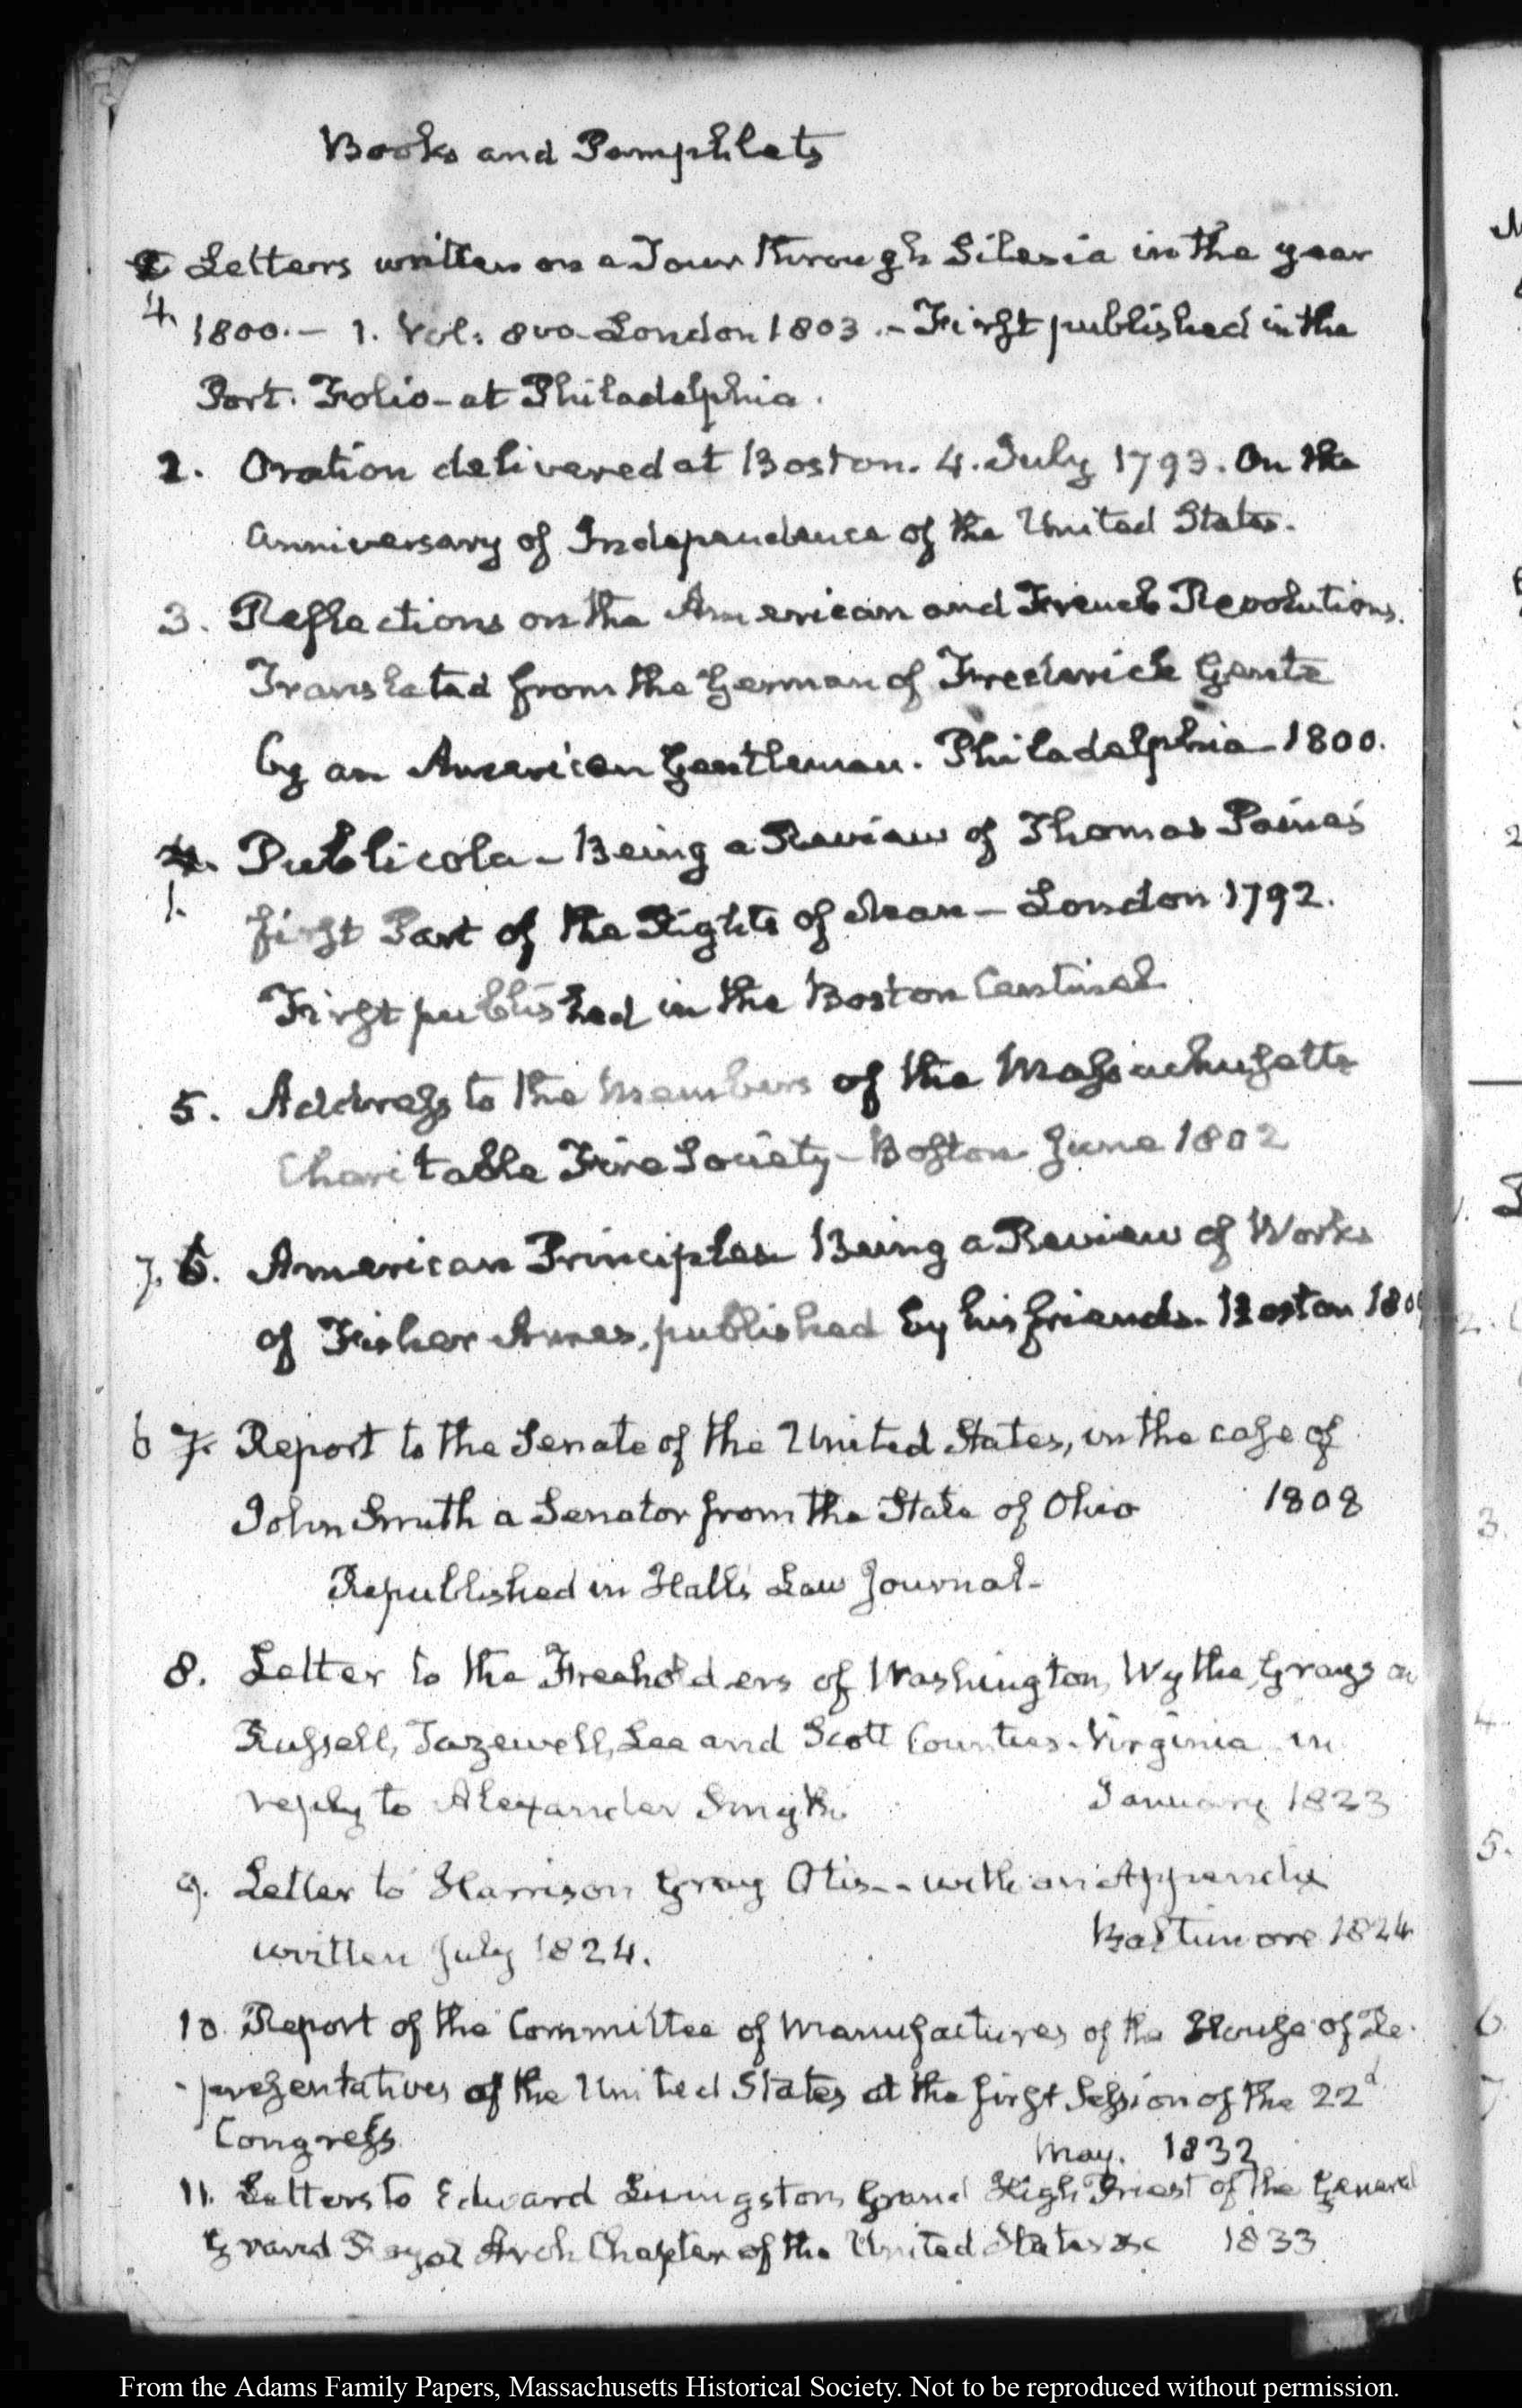 Books and Pamphlets
Letters written on a Tour through Silesia in the year
4
1800.— 1. Vol: 8vo London 1803.— First published in the
Port. Folio—at Philadelphia.
2. Oration delivered at Boston. 4. July 1793. On the
anniversary of Independence of the United States.
3. Reflections on the American and French Revolutions.
Translated from the German of Frederick Gentz
by an American Gentleman. Philadelphia—1800.
4. Publicola—Being a Review of Thomas Paine's
1.
first Part of the Rights of Man—London 1792.
First published in the Boston Centinel
5. Address to the Members of the Massachusetts
Charitable Fire Society—Boston June 1802
7. 6. American Principles Being a Review of Works
of Fisher Ames, published by his friends. Boston 180
6 7. Report to the Senate of the United States, in the case of
John Smith a Senator from the State of Ohio 1808
Republished in Hall's Law Journal—
8. Letter to the Freeholders of Washington, Wythe, Grayson
Russell, Tazewell, Lee and Scott Counties—Virginia in
reply to Alexander Smyth. January 1823
9. Letter to Harrison Gray Otis—with an Appendix
Baltimore 1824
written July 1824.
10. Report of the Committee of Manufactures of the House of Re-
-presentatives of the United States at the first Session of the 22d
Congress May. 1832
11. Letters to Edward Livingston, Grand High Priest of the General
Grand Royal Arch Chapter of the United States &c 1833
M
2
1.
2.
3.
4.
5.
6.
7.
From the Adams Family Papers, Massachusetts Historical Society. Not to be reproduced without permission.